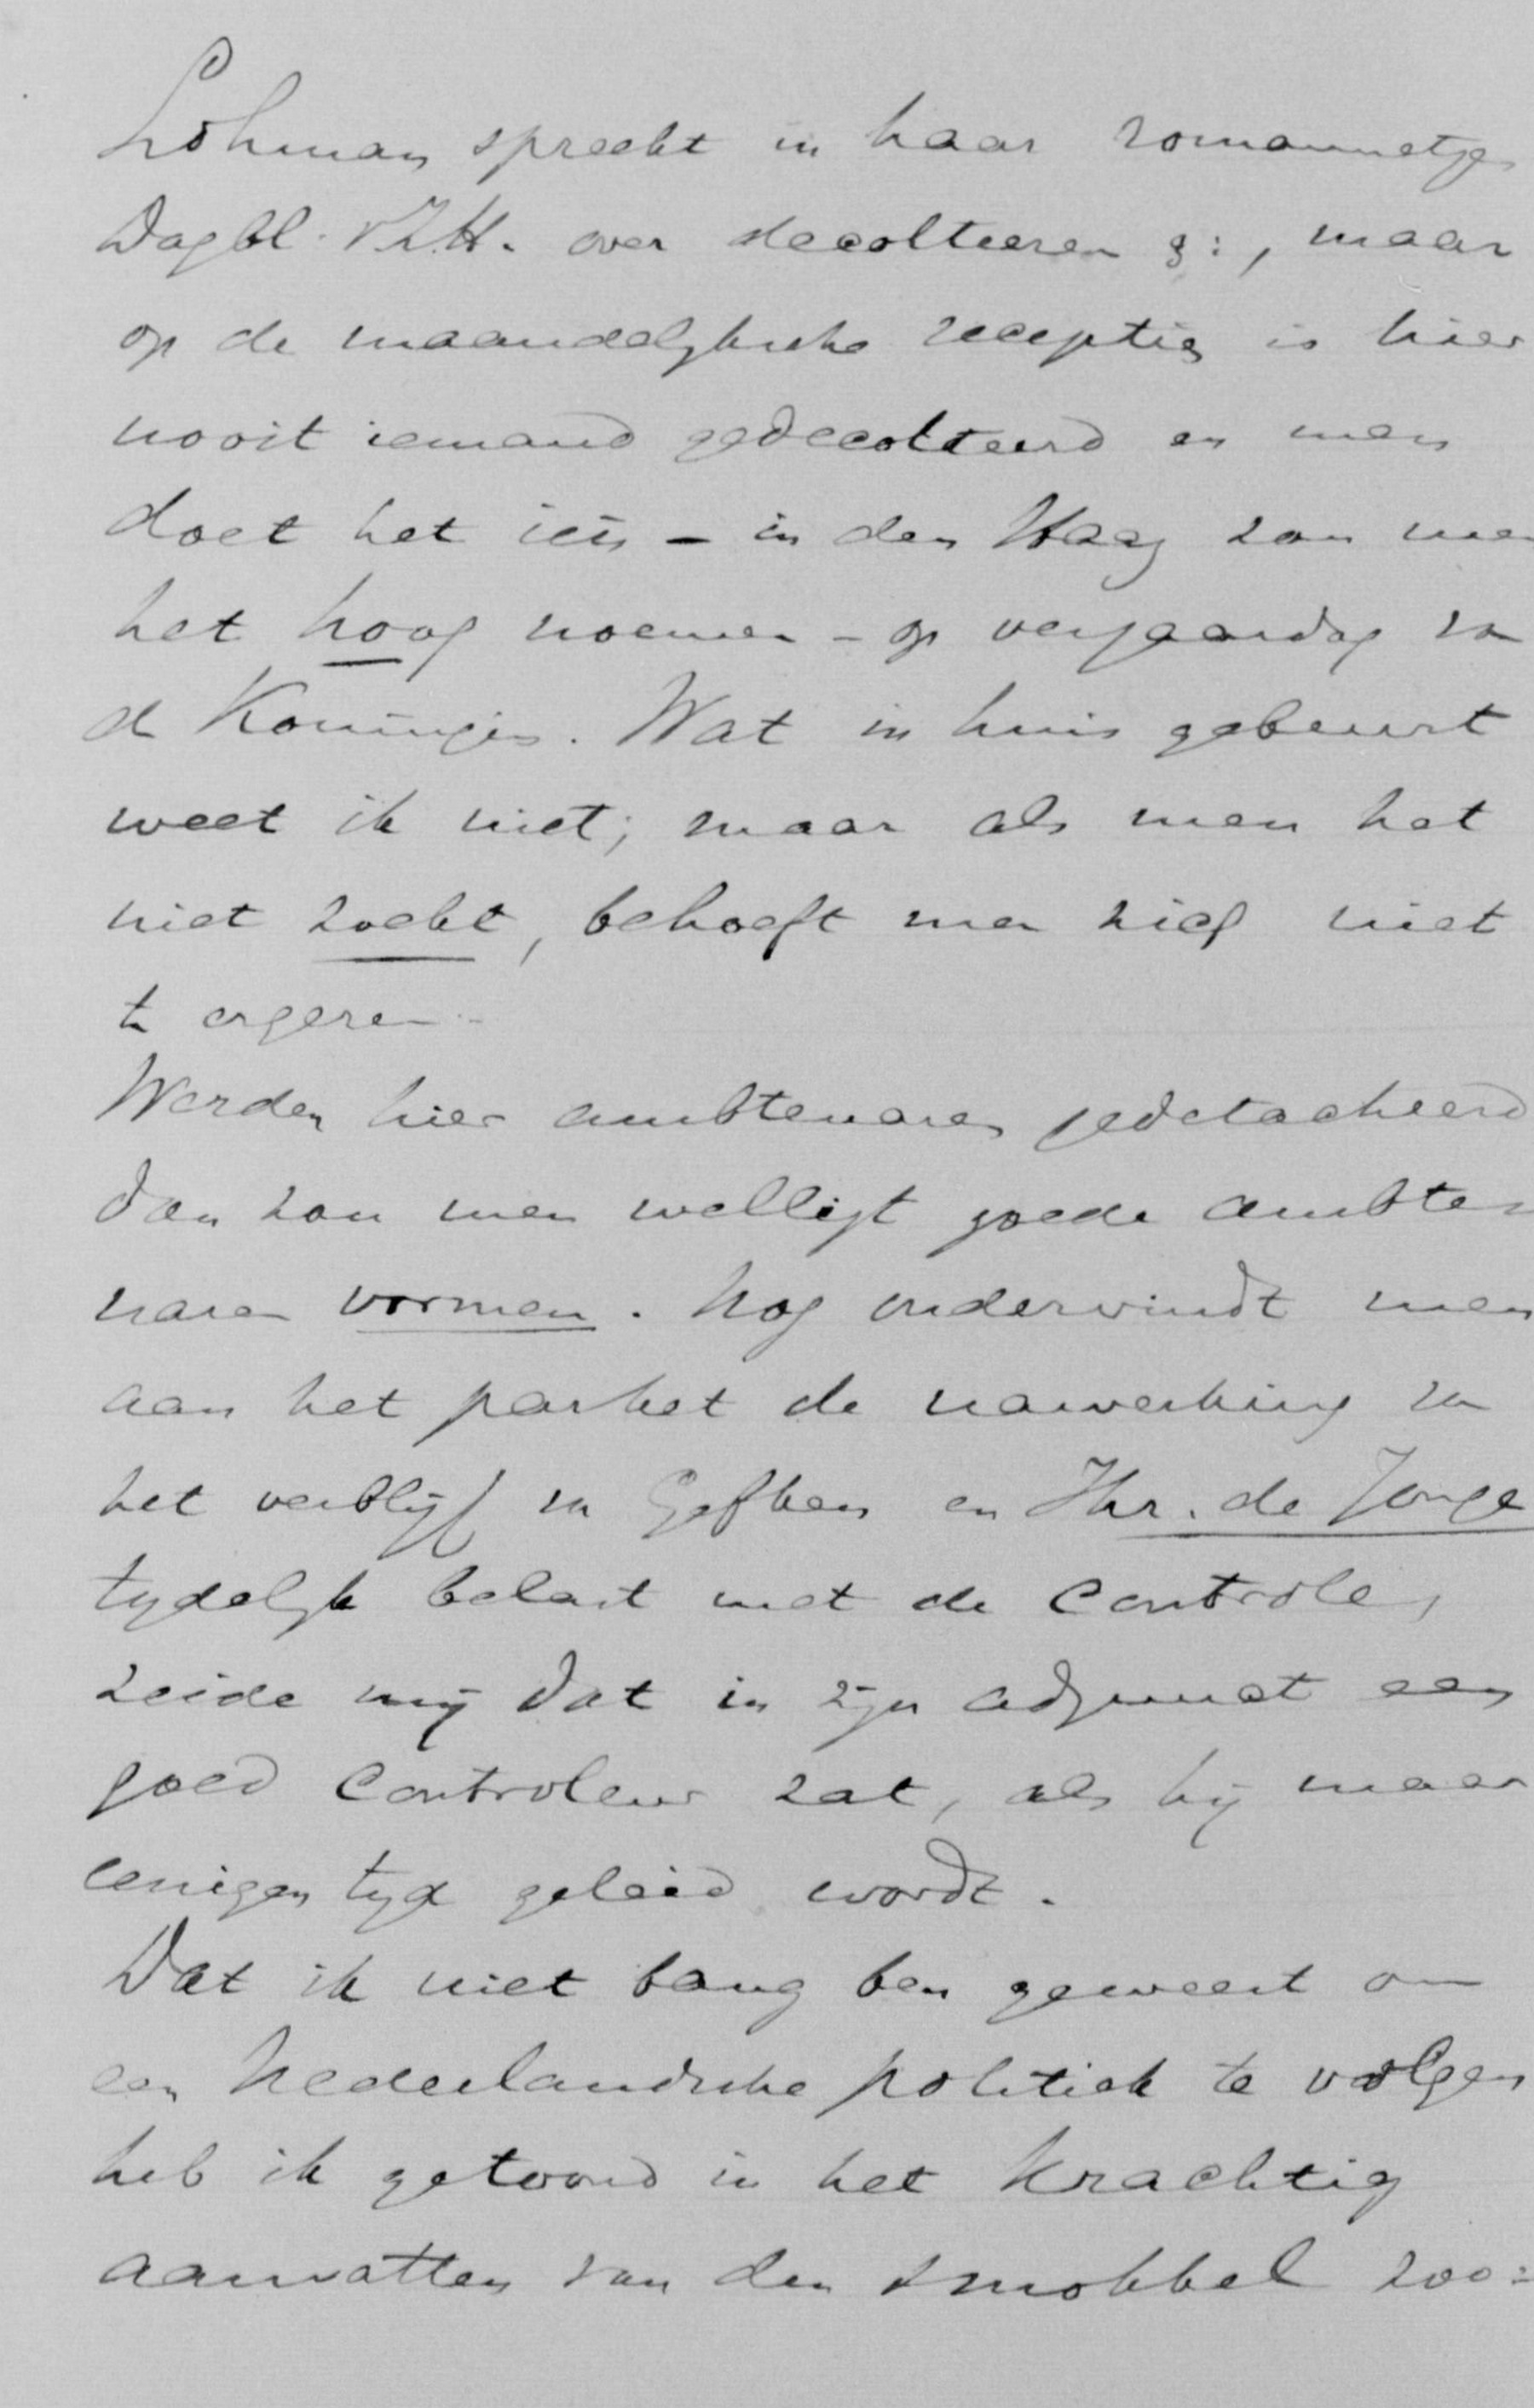 Lohman spreekt in haar romannetje
Dagbl. v Z.H. over decolteeren z:, maar
op de maandelyksche receptie is hier
nooit iemand gedecolteerd en men
doet het iets – in den Haag zou men
het hoog noemen – op verjaardag van
de Koningin. Wat in huis gebeurt
weet ik niet; maar als men het
niet zoekt, behoeft men zich niet
te ergeren.
Werden hier ambtenaren gedetacheerd
dan zou men welligt goede ambte=
naren vormen. Nog ondervindt men
aan het parket de nawerking van
het verblyf van Gefken en Jhr. de Jonge
tydelyk belast met de controle,
zeide mij dat in zijn adjunct een
goed controleur zat, als hij maar
eenigen tyd geleid wordt.
Dat ik niet bang ben geweest om
een Nederlandsche politiek te volgen
heb ik getoond in het krachtig
aanvatten van den smokkel zoo=